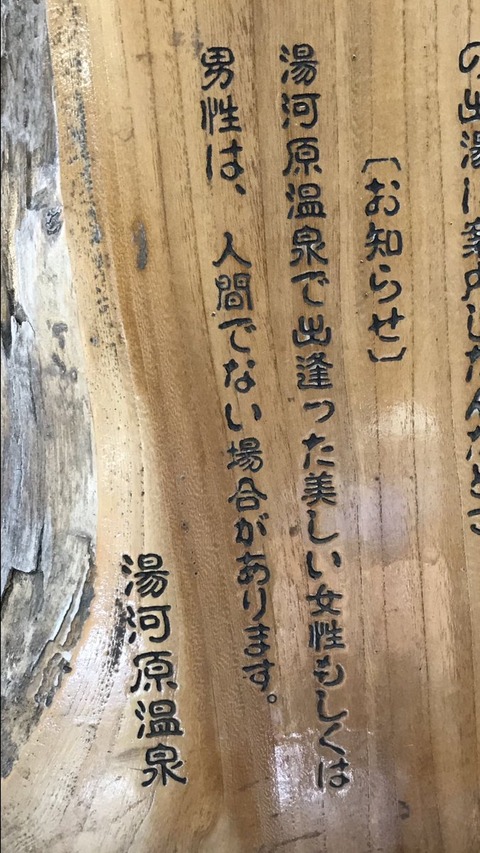 の出湯に案内したんだとさ
〔お知らせ〕
湯河原温泉で出逢った美しい女性もしくは
男性は、人間でない場合があります。
湯河原温泉